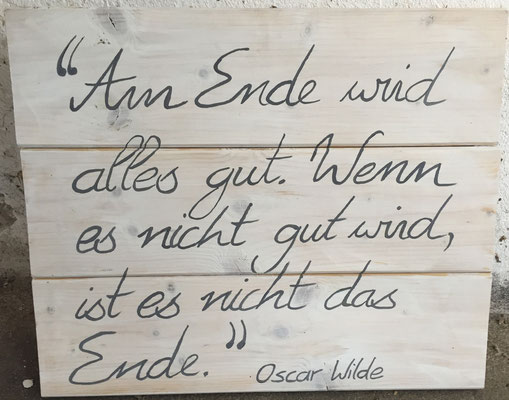 “Am Ende wird
alles gut. Wenn
es nicht gut wird,
ist es nicht das
Ende.”
Oscar Wilde